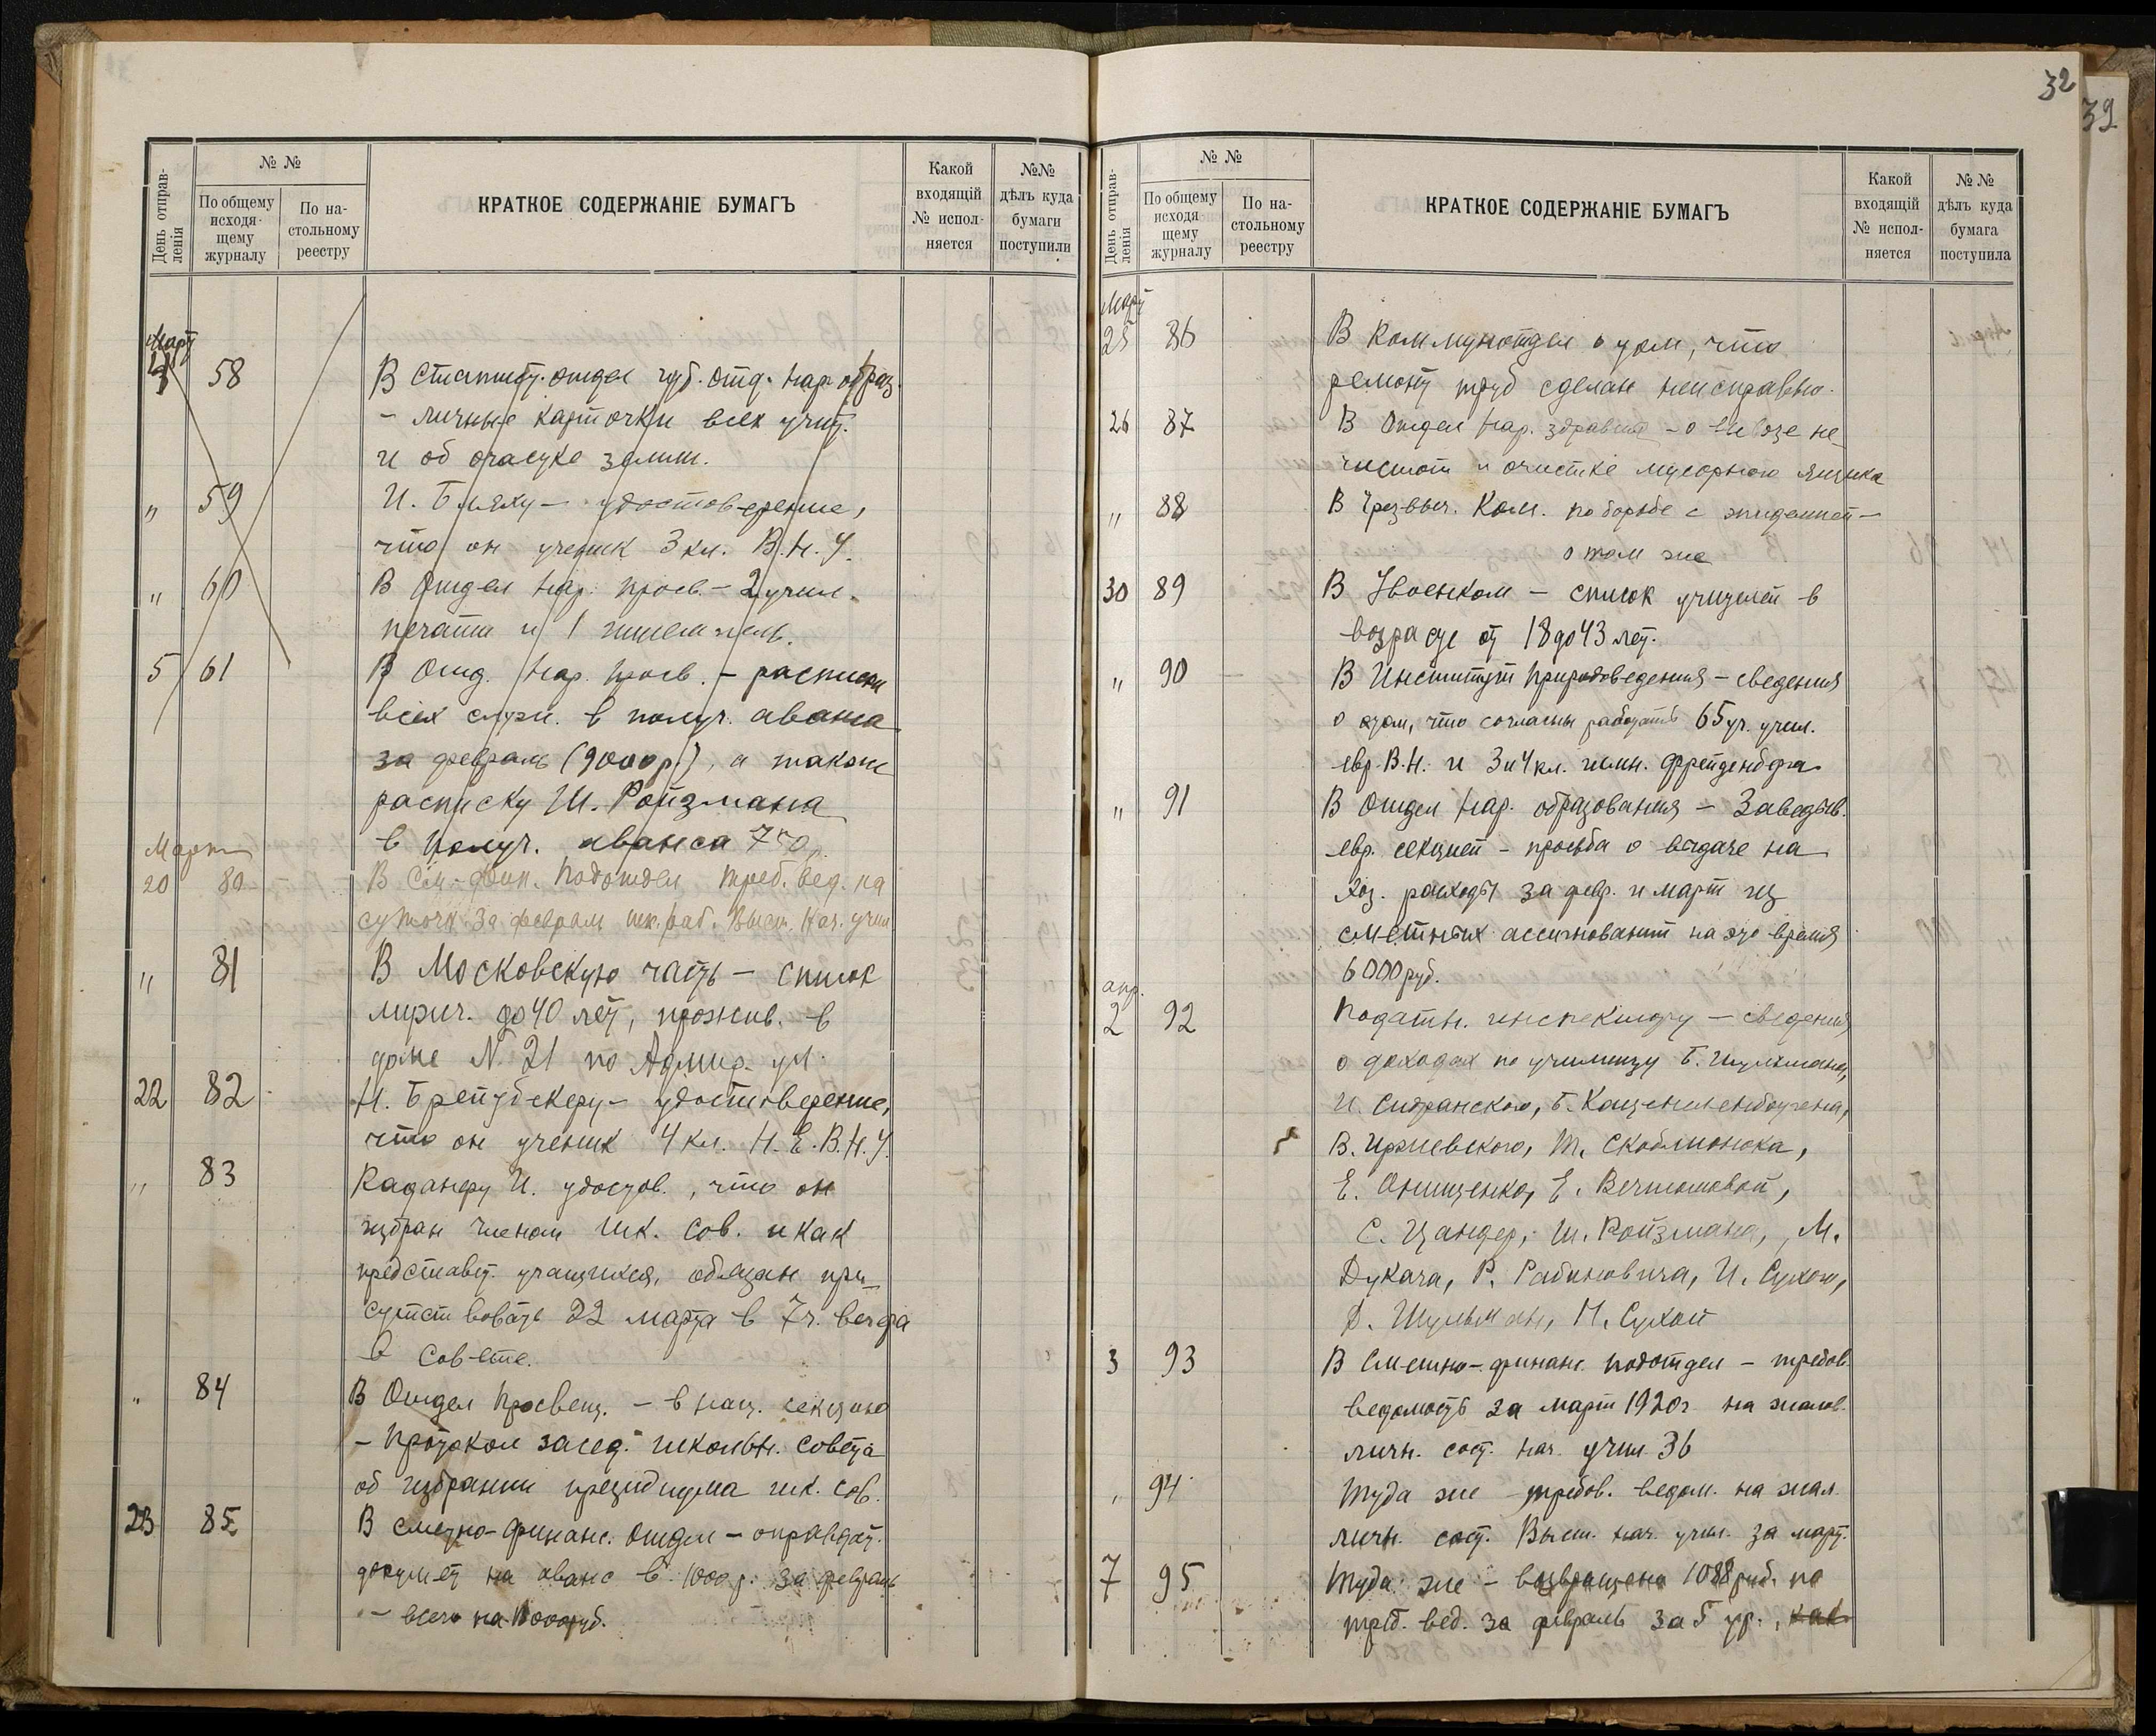 32
39
День отправ-
ленія
№ №
По общему
исходя-
щему
журналу
По на-
стольному
реестру
КРАТКОЕ СОДЕРЖАНІЕ БУМАГЪ
Какой
входящій
№ испол-
няется
№№
дѣлъ куда
бумаги
поступили
Март
58 В Статист. отдел губ. отд. нар. образ.
- личные карточки всех учит.
и об
" 59 И. Бляху - удостоверение,
что он ученик 3 кл. В.Н.У.
" 60 В Отдел нар. просв. - 2 учил.
печати и 1 штемпель.
5 61 В Отд. нар. просв. - расписки
всех служ. в получ. аванса
за февраль (9000 р.), а также
расписку Ш. Ройзмана
в получ. аванса 750 р.
Март
20 80 В См-фин. Подотдел треб. вед. на
суточн. за феврал шк. раб. Высш. Нач. учил
" 81 В Московскую часть - список
мужч. до 40 лет, прожив. в
доме № 21 по Адмир. ул.
22 82 Н. Брейтубекеру - удостоверение,
что он ученик 4 кл. Н.Е.В.Н.У.
" 83 Каданеру И. удостов., что он
избран членом шк. сов. и как
представит. учащихся, обязан при-
сутствовать 22 марта в 7 ч. вечера
в Совете.
" 84 В Отдел Просвещ. - в нац. секцию
- протокол засед. школьн. совета
об избрании президиума шк. сов.
23 85 В сметно-финанс. отдел - оправдат.
документ на аванс в 1000 р. за февраль
- всего на 1000 руб.
День отправ-
ленія
№ №
По общему
исходя
щему
журналу
По на-
стольному
реестру
КРАТКОЕ СОДЕРЖАНІЕ БУМАГЪ
Какой
входящій
№ испол-
няется
№ №
дѣлъ куда
бумага
поступила
Март
25 86 В Коммунотдел о том, что
ремонт труб сделан неисправно.
26 87 В Отдел нар. здравия - о вывозе не
чистот и очистке мусорного ящика
" 88 В Чрезвыч. Ком. по борьбе с эпидемией -
о том же
30 89 В Увоенком - список учителей в
возрасте от 18 до 43 лет.
" 90 В Институт Природоведения - сведения
о том, что согласны работать 65 уч. учил.
евр. В.Н. и 3 и 4 кл. гимн. Фрейденберга
" 91 В Отдел нар. образования - Заведыв.
евр. секцией - просьба о выдаче на
хоз. расходы за февр. и март из
сметных ассигнований на это время
6000 руб.
апр.
2 92 Податн. инспектору - сведения
о доходах по училищу Б. Шульмана,
И. Сигранского, Б. Каценеленбогена,
В. Иржевского, М. Скоблионока,
Е. Онищенко, Е. Вечтомовой,
С. Цандер, Ш. Ройзмана, М.
Дукача, Р. Рабиновича, И. Сухого,
Д. Шульман, М. Сухой
3 93 В Сметно-финанс. подотдел - требов.
ведомость за март 1920 г. на жалов.
личн. сост. нач. учил 36
" 94 Туда же - требов. ведом. на жал.
личн. сост. Высш. нач. учил. за март.
7 95 Туда же - возвращено 1088 руб. по
треб. вед. за февраль за 5 ур., как